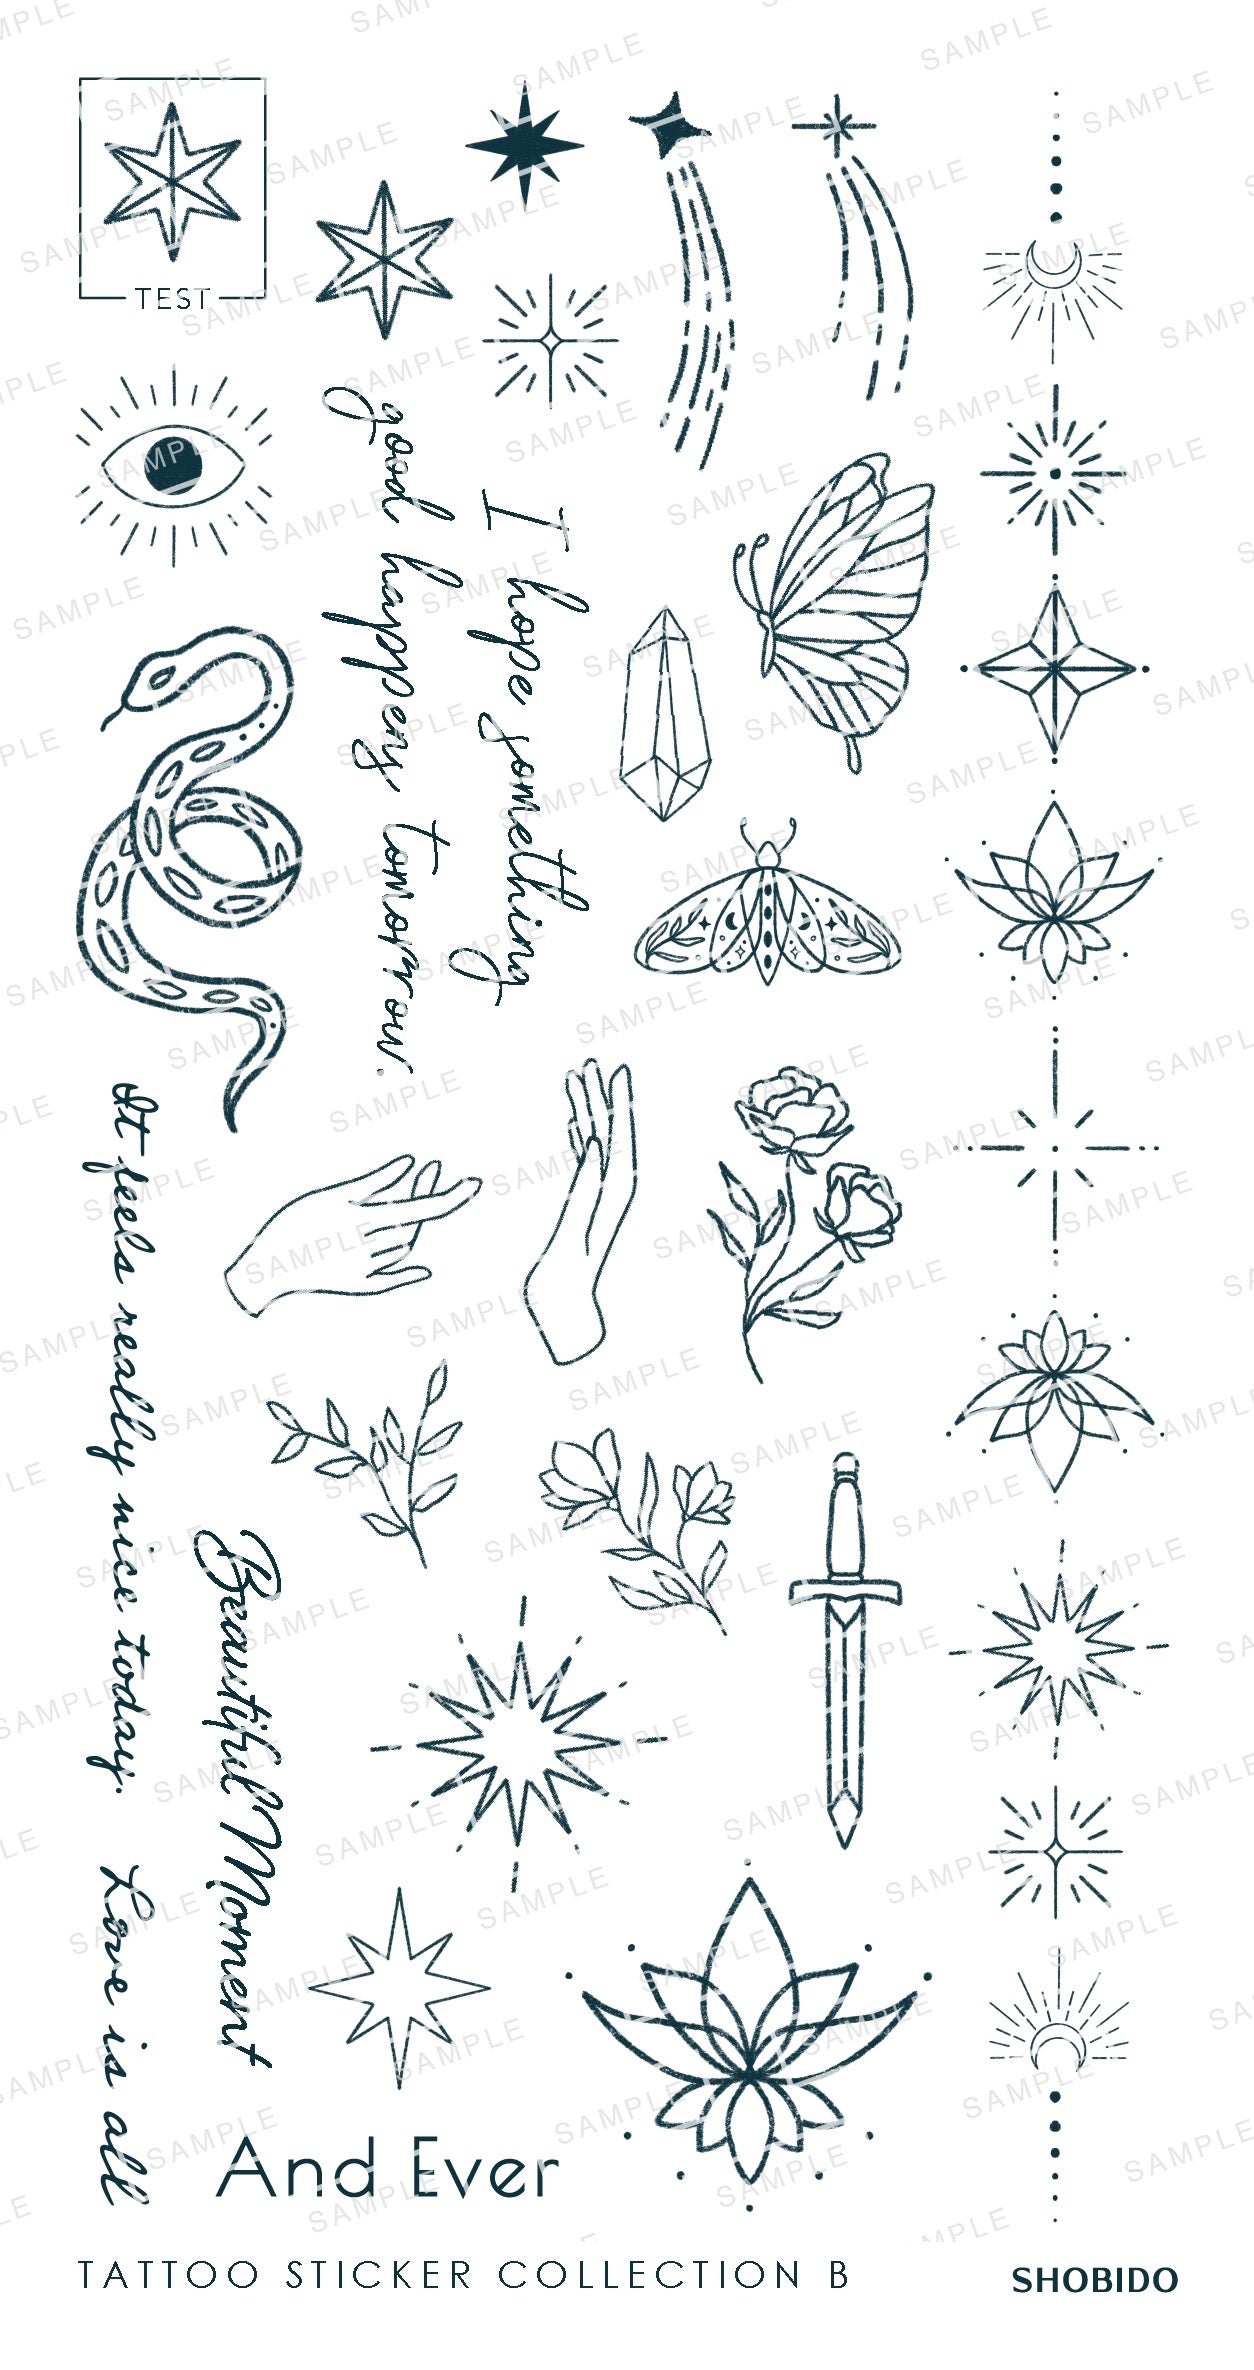 TEST
I hope something
good happens tomorrow.
It feels really nice today.
Beautiful Moment
Love is all
And Ever
TATTOO STICKER COLLECTION B
SHOBIDO
SAMPLE